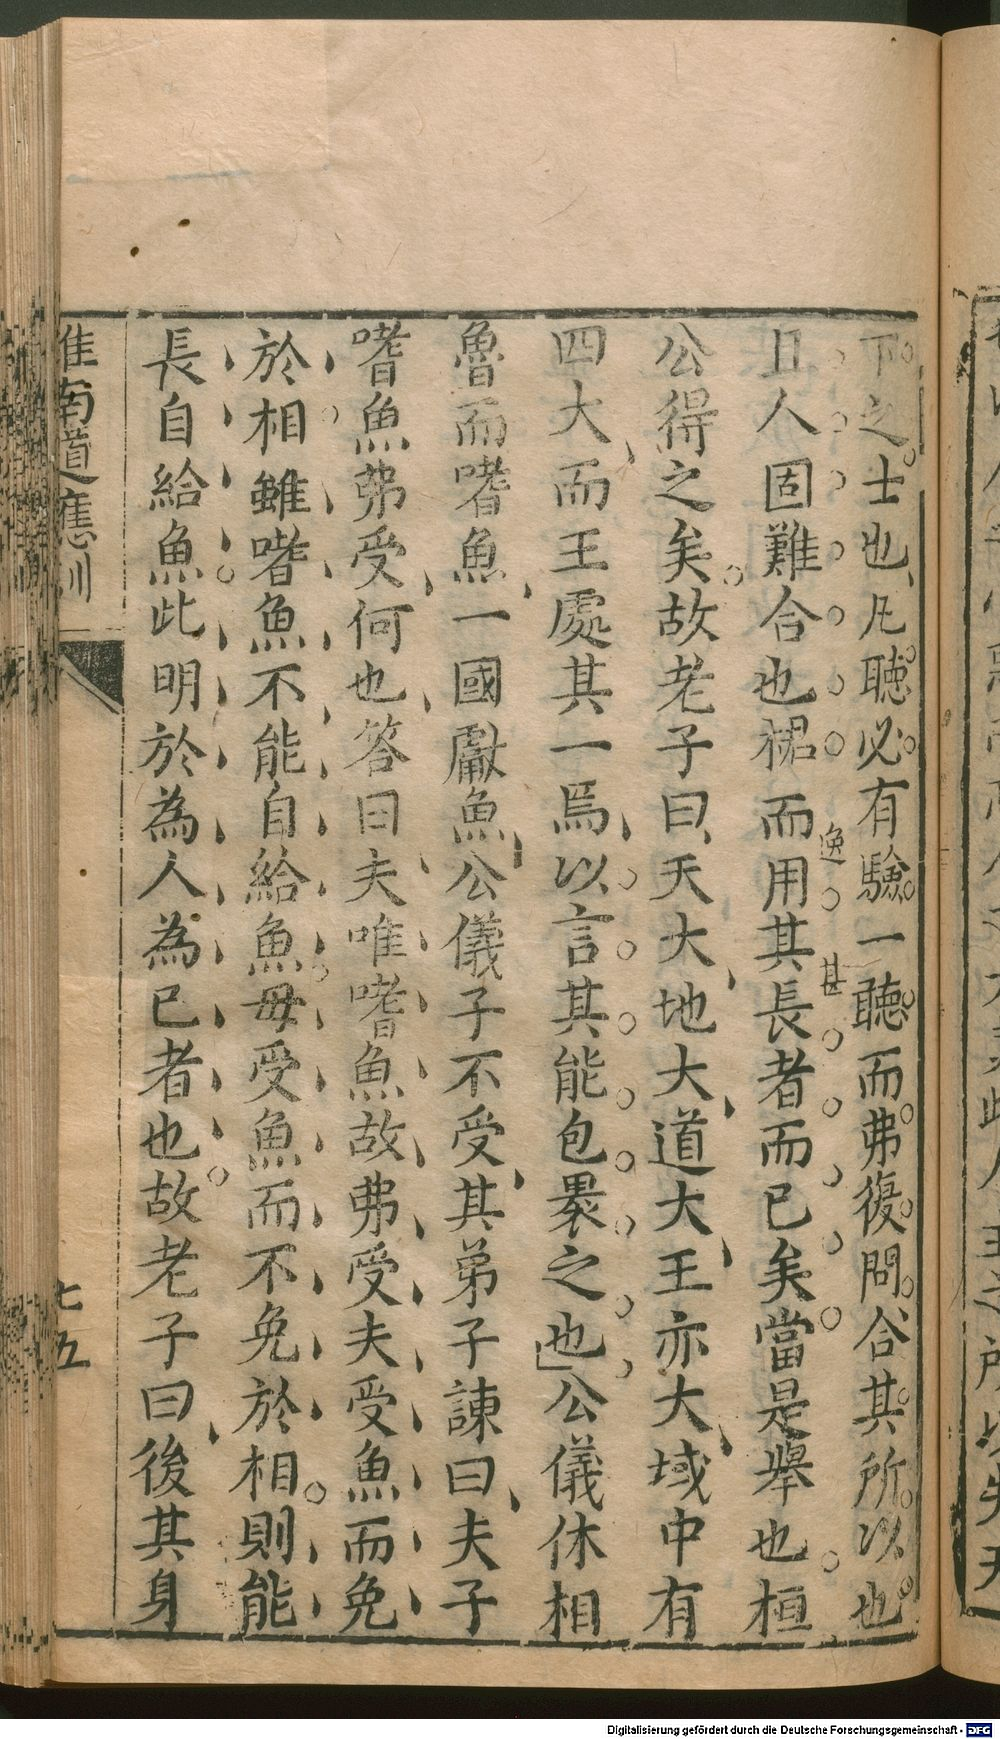 下之士也凡聽必有驗一聽而弗復問合其所以也
且人固難合也裙而用其長者而已矣當是舉也桓
逸
甚
公得之矣故老子曰天大地大道大王亦大域中有
四大而王處其一焉以言其能包褁之也公儀休相
魯而嗜魚一國獻魚公儀子不受其弟子諫曰夫子
嗜魚弗受何也答曰夫唯嗜魚故弗受夫受魚而免
於相雖嗜魚不能自給魚毋受魚而不免於相則能
長自給魚此明於為人為已者也故老子曰後其身
淮南道應訓
七五
Digitalisierung gefördert durch die Deutsche Forschungsgemeinschaft - DFG